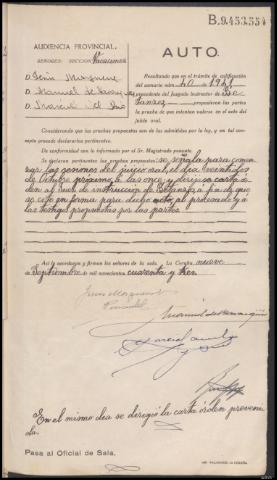 B.9.453.554
AUDIENCIA PROVINCIAL.
SEÑORES: SECCION Vacaciones
D. Jesús
D. Manuel de
D. Marcial del Rio
AUTO.
Resultando que en el trámite de calificación
del sumario núm. 40 de 1941
procedente del juzgado instructor de Be-
tanzos propusieron las partes
la prueba de que intentan valerse en el acto
del juicio oral.
Considerando que las pruebas propuestas son de las admitidas por la ley, y en tal con-
cepto procede declararlas pertinentes.
De conformidad con lo informado por el Sr. Magistrado ponente.
Se declaran pertinentes las pruebas propuestas; se señala para comen-
zar las sesiones del juicio oral, el día veintidos
de Octubre próximo a las once, y dirijase carta ór-
den al Juez de instrucción de Betanzos a fin de que
se cite en forma para dicho acto, al procesado y a
los testigos propuestos por las partes.
Así lo acordaron y firman los señores de la sala. La Coruña nueve
de Septiembre de mil novecientos cuarenta y tres
En el mismo día se dirigió la carta órden preveni
da.
Pasa al Oficial de Sala.